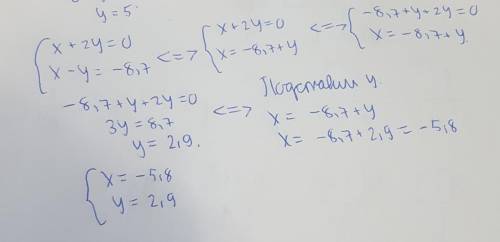 y = 5
{ x + 2y = 0 <=> { x + 2y = 0 <=> { -8,7 + y + 2y = 0
{ x - y = -8,7 { x = -8,7 + y { x = -8,7 + y
-8,7 + y + 2y = 0 <=> Подставим y.
3y = 8,7 x = -8,7 + y
y = 2,9. x = -8,7 + 2,9 = -5,8
{ x = -5,8
{ y = 2,9